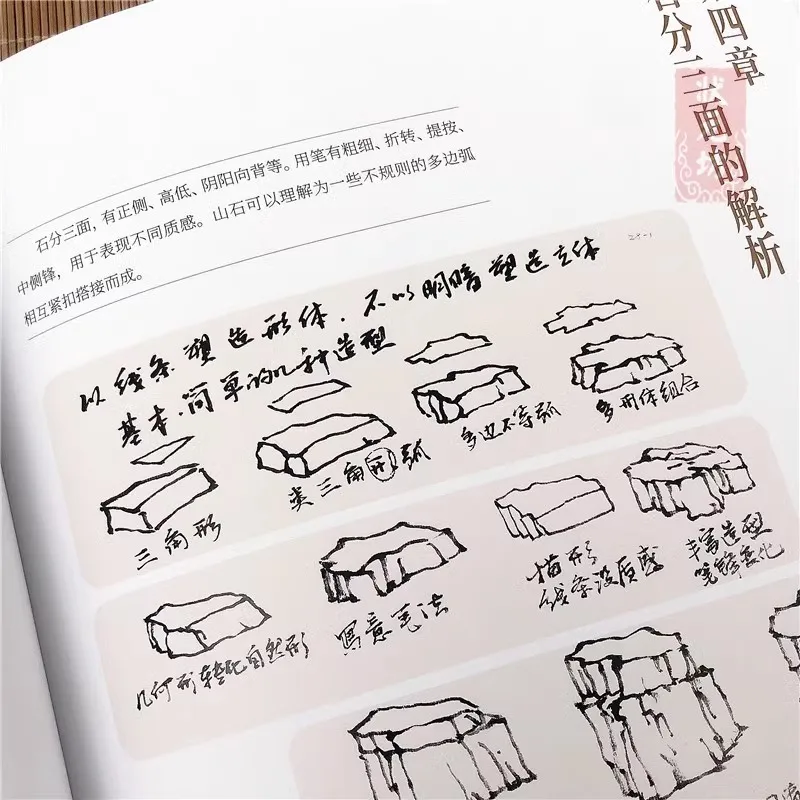 四章
石分三面的解析
石分三面，有正侧、高低、阴阳向背等。用笔有粗细、折转、提按、
中侧锋，用于表现不同质感。山石可以理解为一些不规则的多边弧
相互紧扣搭接而成。
以线条塑造形体，不以明暗塑造立体
基本、简单的几种造型
三角形
类三角形弧
多边不等弧
多形体组合
几何形转化自然形
写意笔法
描形
线条没质感
丰富造型
笔锋变化